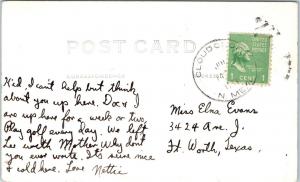 POST CARD
CORRESPONDENCE
CLOUDCROFT
N. MEX.
1 CENT 1
Kid, I can't help but think
about you up here. Doc & I
are up here for a week or two.
Play golf every day. We left
Lee with Mother. Why don't
you ever write. It's sure nice
& cold here. Love Nettie
Miss Elna Evans
3424 Ave. J.
Ft. Worth, Texas.